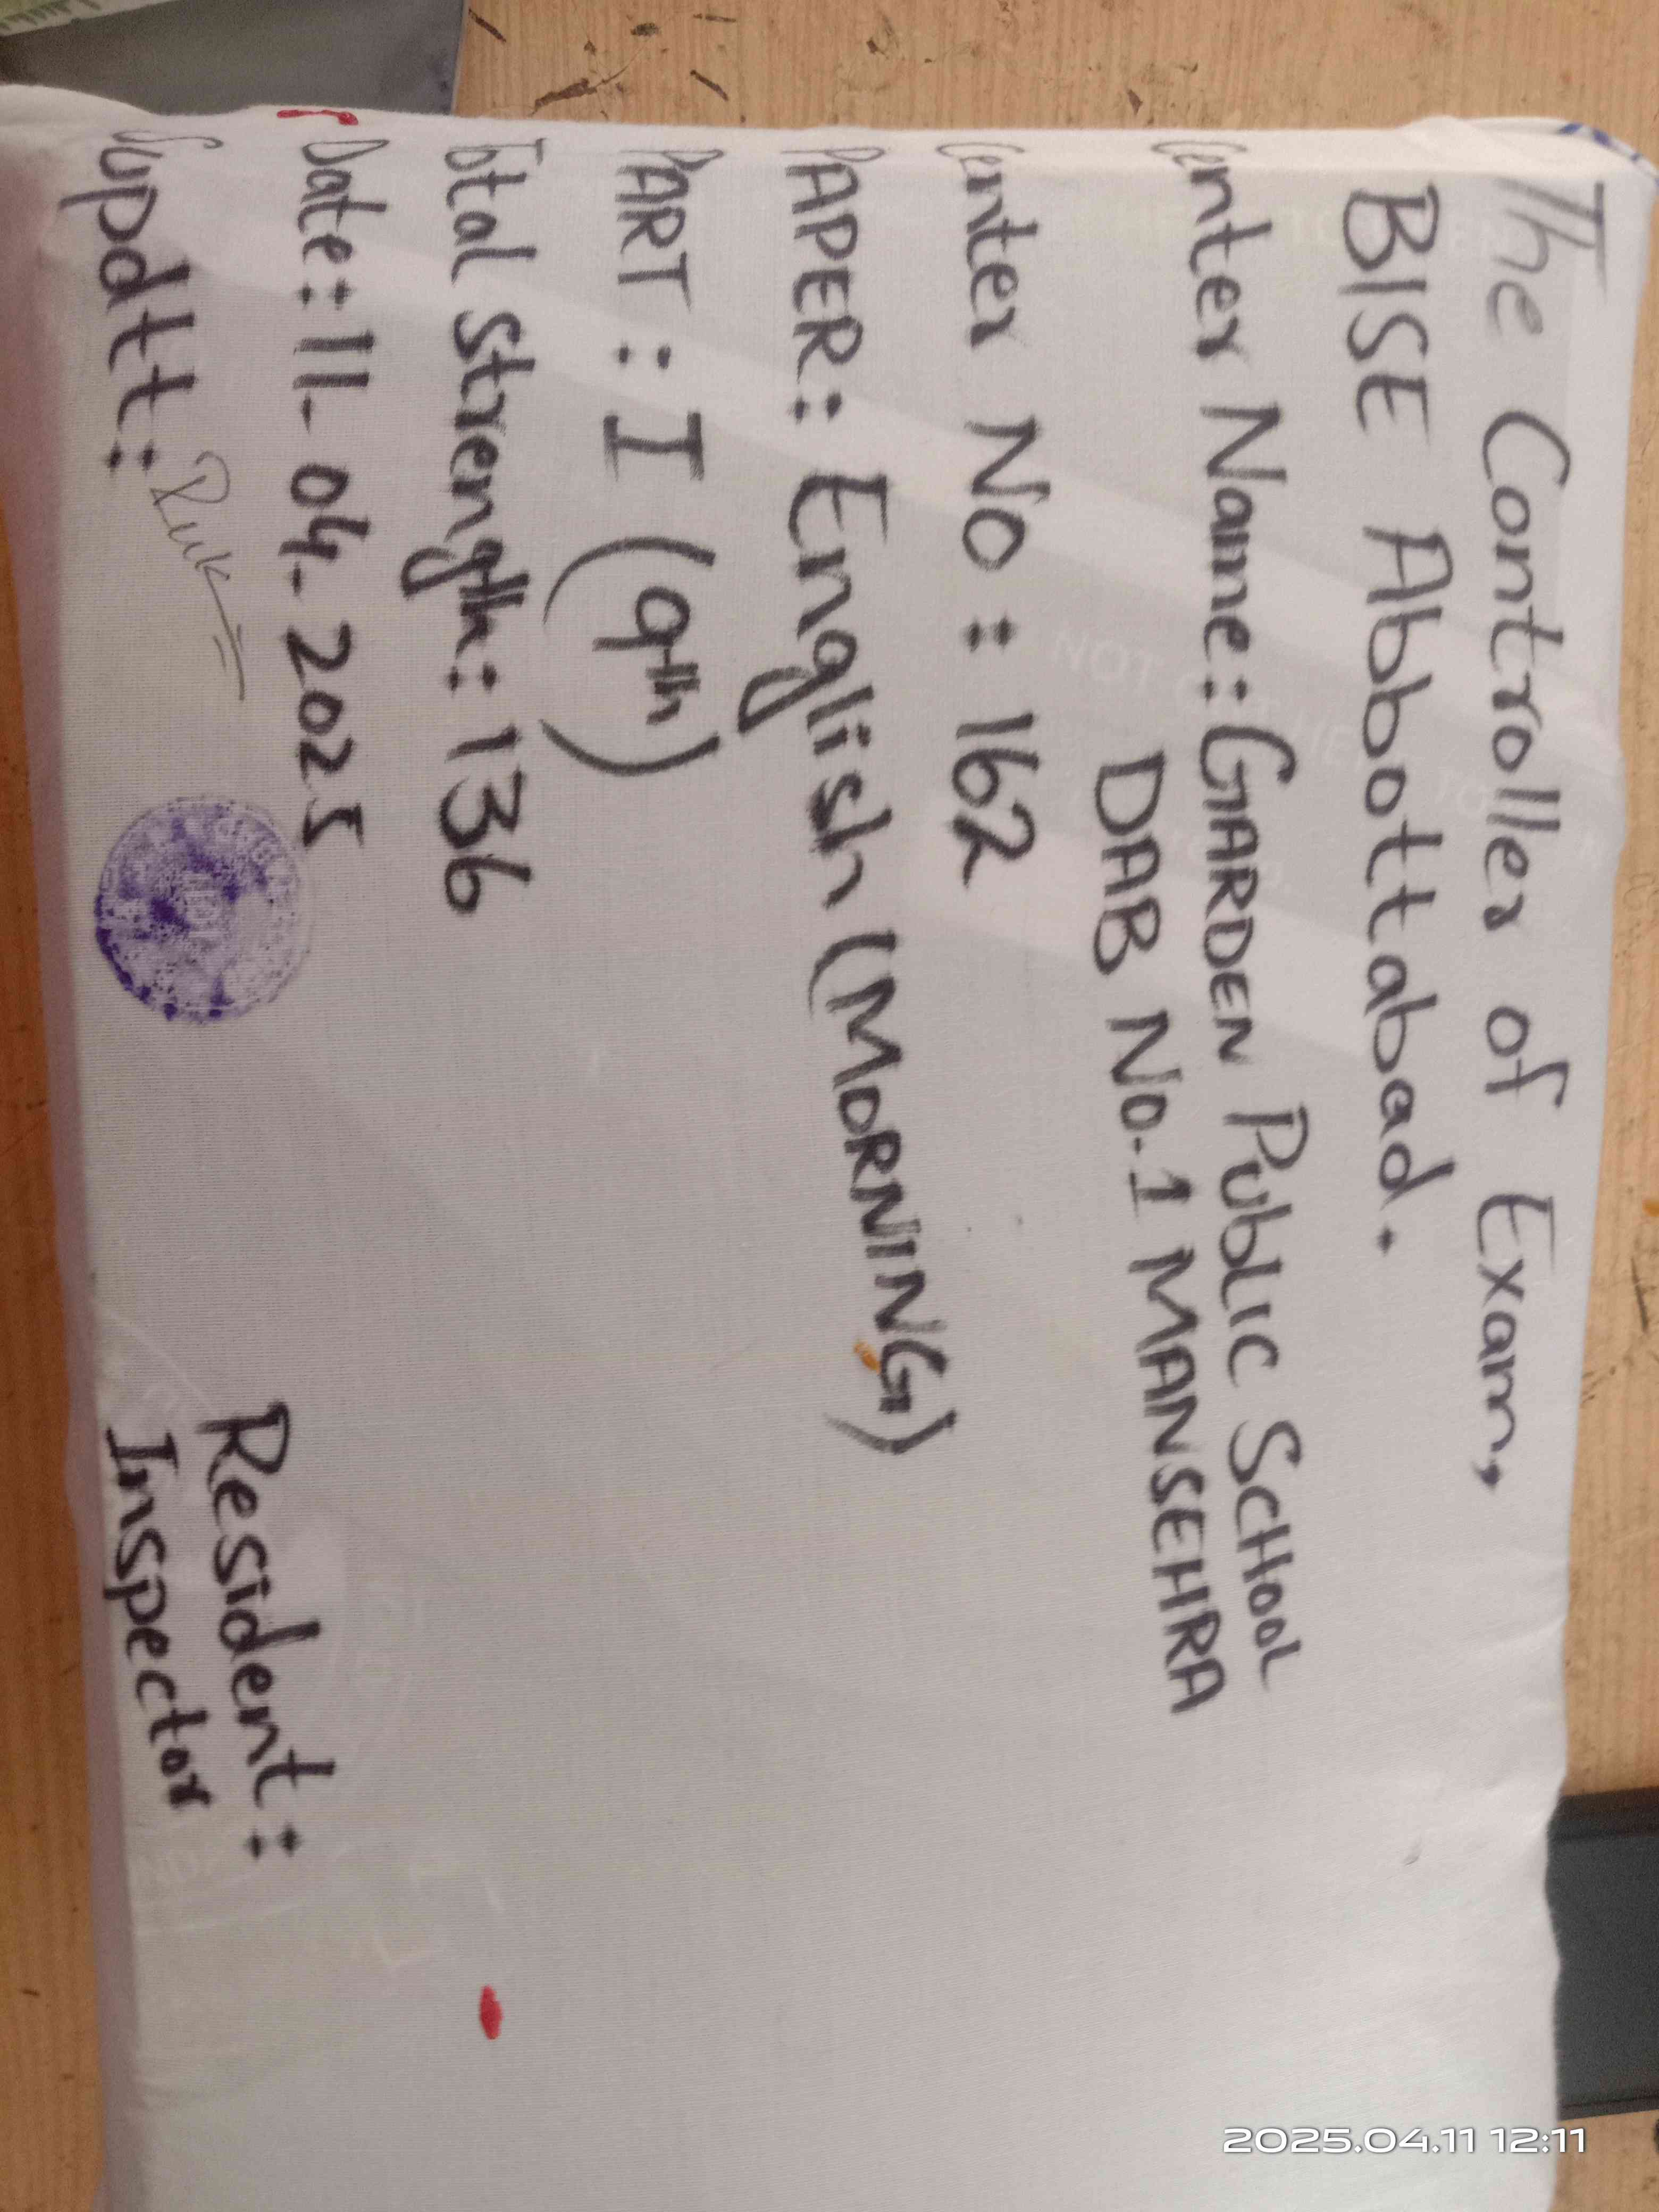 The Controller of Exam,
BISE Abbottabad.
Center Name: GARDEN PUBLIC SCHOOL
DAB NO. 1 MANSEHRA
Center NO: 162
PAPER: English (MORNING)
PART: I (9th)
Total Strength: 136
Date: 11-04-2025
Supdtt:
Resident:
Inspector
2025.04.11 12:11